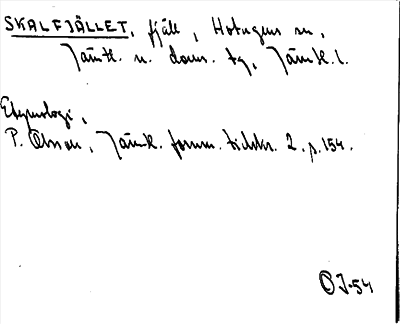 SKALFJÄLLET, fjäll, Hotagens sn,
Jämtl. n. doms. tg, Jämtl. l.
Etymologi,
P. Olsson, Jämtl. fornm. tidskr. 2, p. 154.
OJ-54